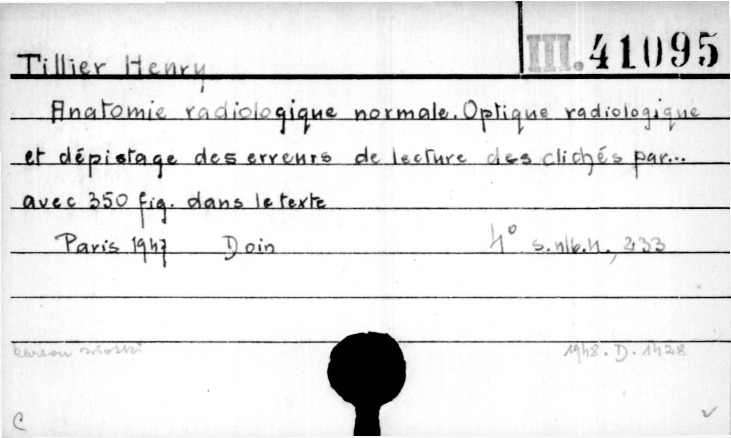 III. 41095
Tillier Henry
Anatomie radiologique normale. Optique radiologique
et dépistage des erreurs de lecture des clichés par...
avec 350 fig. dans le texte
Paris 1947 Doin 4° s. nlb. 4., 233
1948. D. 1428
C